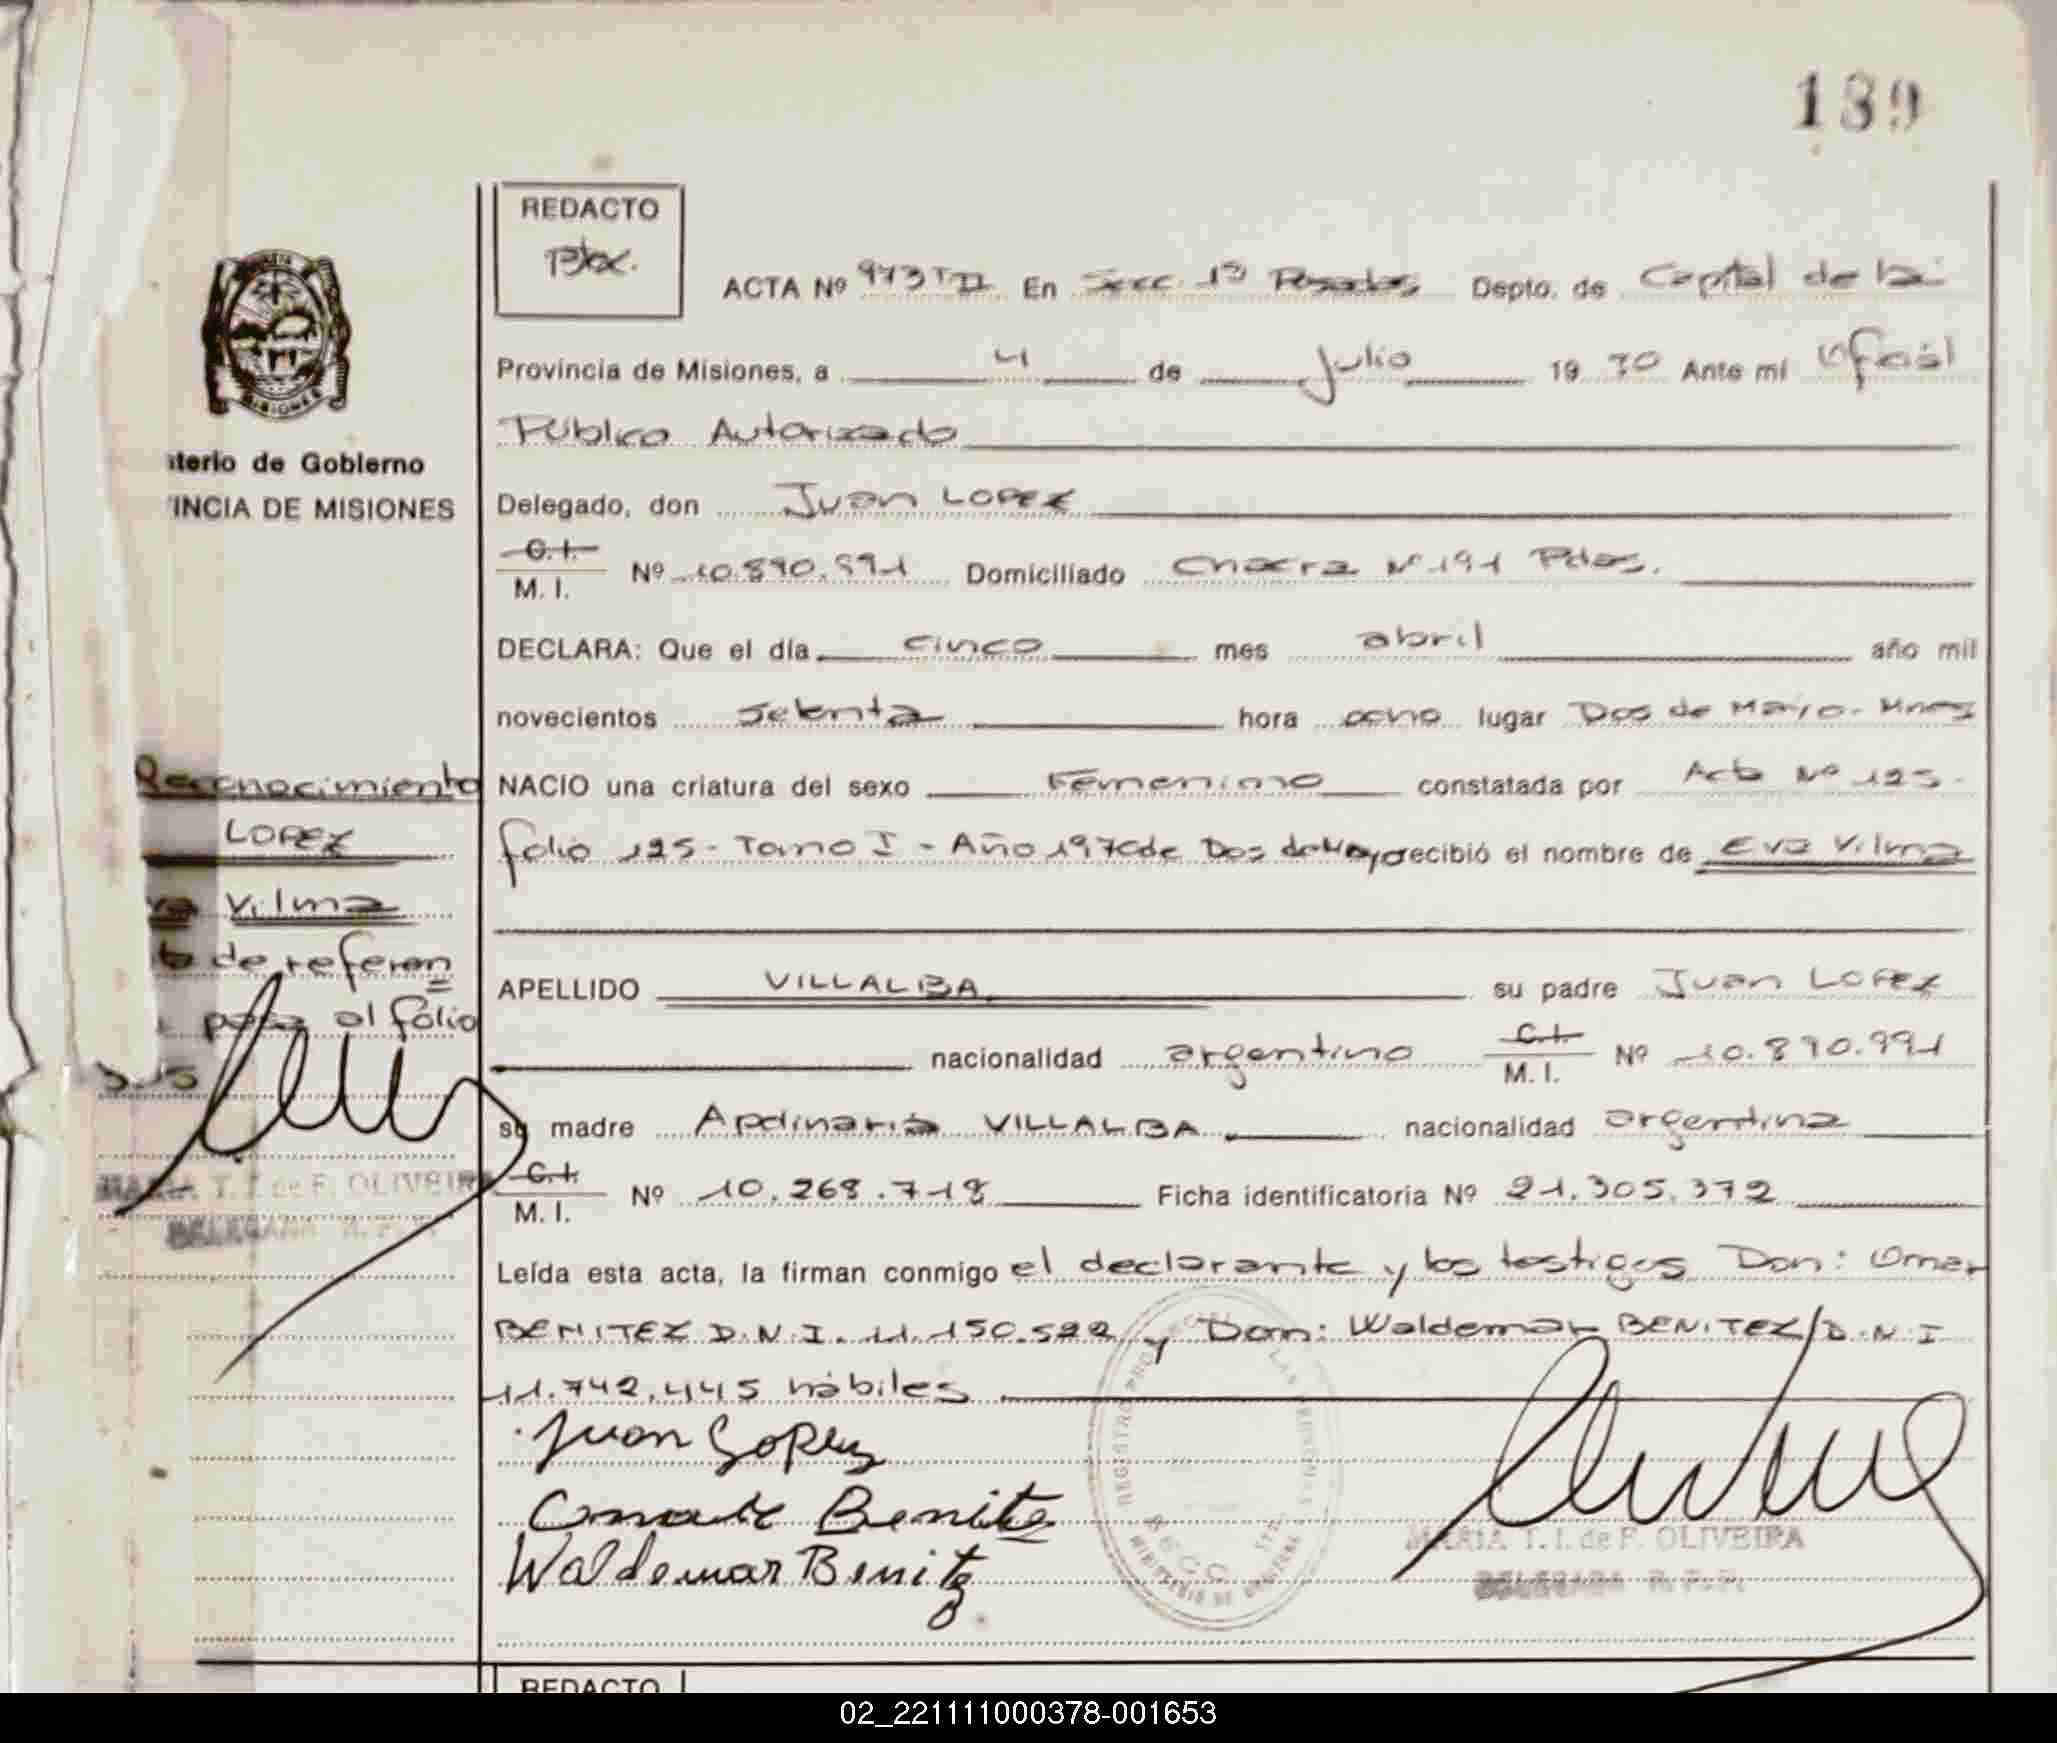 139
REDACTO
ACTA Nº 973 T II En Secc. 1º Posadas Depto. de Capital de la
Provincia de Misiones, a 4 de Julio 19 Ante mi Oficial
Público Autorizado
Delegado, don Juan LOPEZ
C.I.
M. I. Nº 10.890.991 Domiciliado Chacra Nº 191 Pdas.
DECLARA: Que el día cinco mes abril año mil
novecientos setenta hora ocho lugar Dos de Mayo - Mnes
NACIO una criatura del sexo Femenino constatada por Acta Nº 125-
folio 125 - Tomo I - Año 1970 de Dos de Mayo recibió el nombre de Eva Vilma
APELLIDO VILLALBA su padre Juan LOPEZ
nacionalidad argentino C.I. M. I. Nº 10.890.991
su madre Apolinaria VILLALBA nacionalidad argentina
C.I.
M. I. Nº 10.268.718 Ficha identificatoria Nº 21.305.372
Leída esta acta, la firman conmigo el declarante y los testigos Don: Omar
BENITEZ D.N.I. 11.150.522 y Don: Waldemar BENITEZ / D.N.I
11.742.445 hábiles
Juan Lopez
Omar Benite
Waldemar Benitz
MARIA T. I. de F. OLIVEIRA
DELEGADA R. P. P.
MISIONES
sterio de Gobierno
INCIA DE MISIONES
Reconocimiento
LOPEZ
va Vilma
de referen
pasa al folio
MARIA T. I. de F. OLIVEIRA
DELEGADA R. P. P.
REDACTO
02_221111000378-001653